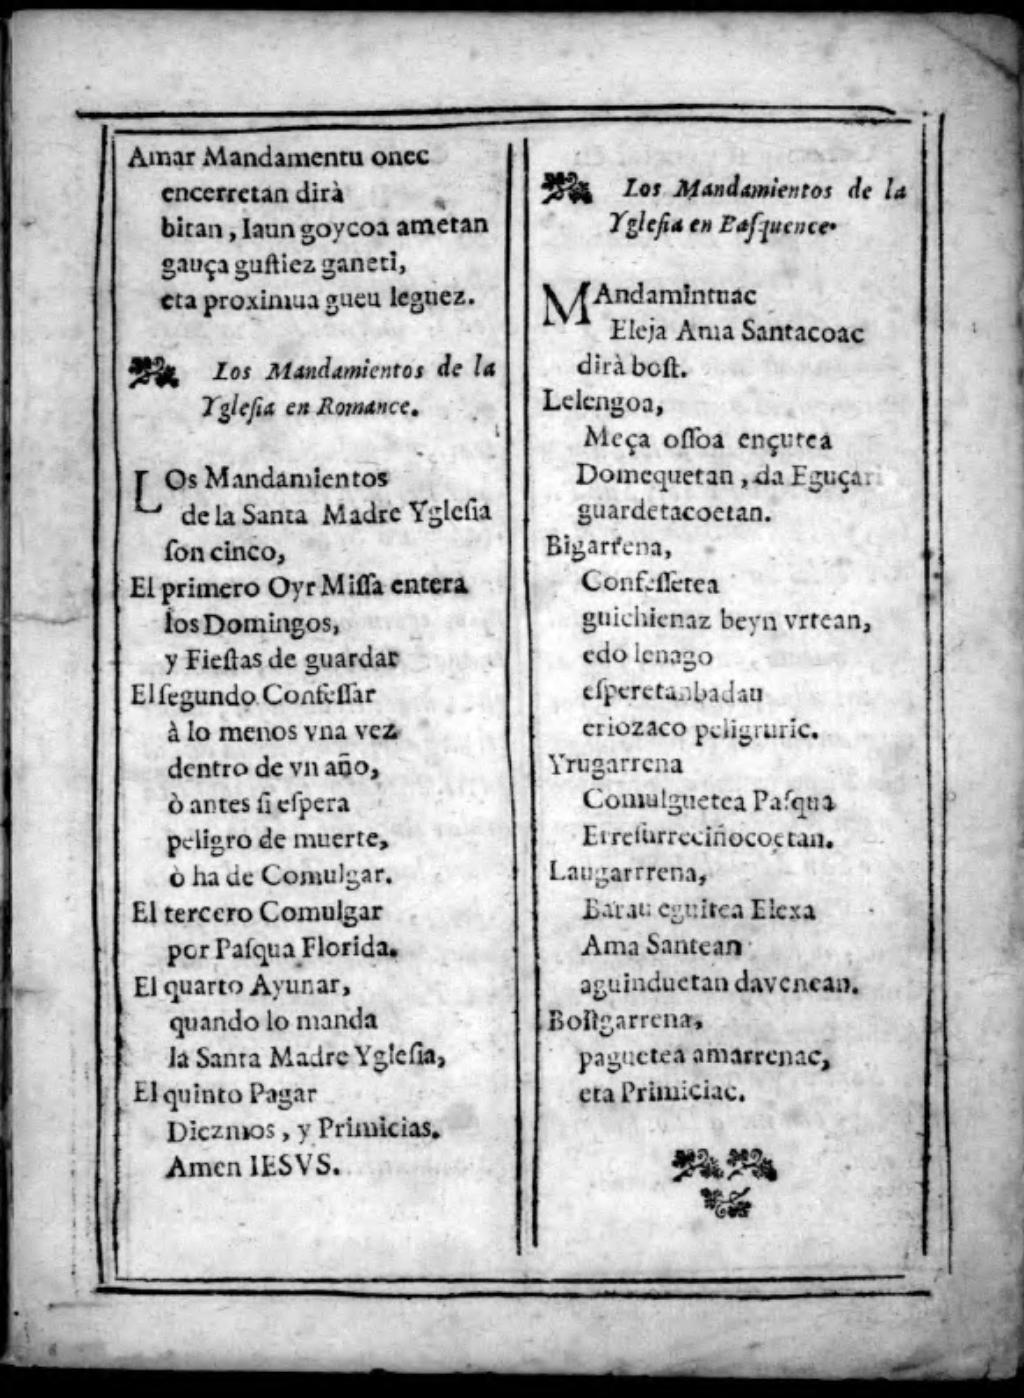 Amar Mandamentu onec
encerretan dirà
bitan, Iaun goycoa ametan
gauça guſtiez ganeti,
eta proximua gueu leguez.
Los Mandamientos de la
Ygleſia en Romance.
LOs Mandamientos
de la Santa Madre Ygleſia
ſon cinco,
El primero Oyr Miſſa entera
los Domingos,
y Fieſtas de guardar
El ſegundo Confeſſar
à lo menos vna vez
dentro de vn año,
ò antes ſi eſpera
peligro de muerte,
ò ha de Comulgar.
El tercero Comulgar
por Paſqua Florida.
El quarto Ayunar,
quando lo manda
la Santa Madre Ygleſia,
El quinto Pagar
Diezmos, y Primicias.
Amen IESVS.
Los Mandamientos de la
Ygleſia en Baſquence.
MAndamintuac
Eleja Ama Santacoac
dirà boſt.
Lelengoa,
Meça oſſoa ençutea
Domequetan, da Eguçari
guardetacoetan.
Bigarrena,
Confeſſetea
guichienaz beyn vrtean,
edo lenago
eſperetanbadau
eriozaco peligruric.
Yrugarrena
Comulguetea Paſqua
Erreſurreciñocoetan.
Laugarrrena,
Barau eguitea Elexa
Ama Santean
aguinduetan davenean.
Boſtgarrena,
paguetea amarrenac,
eta Primiciac.